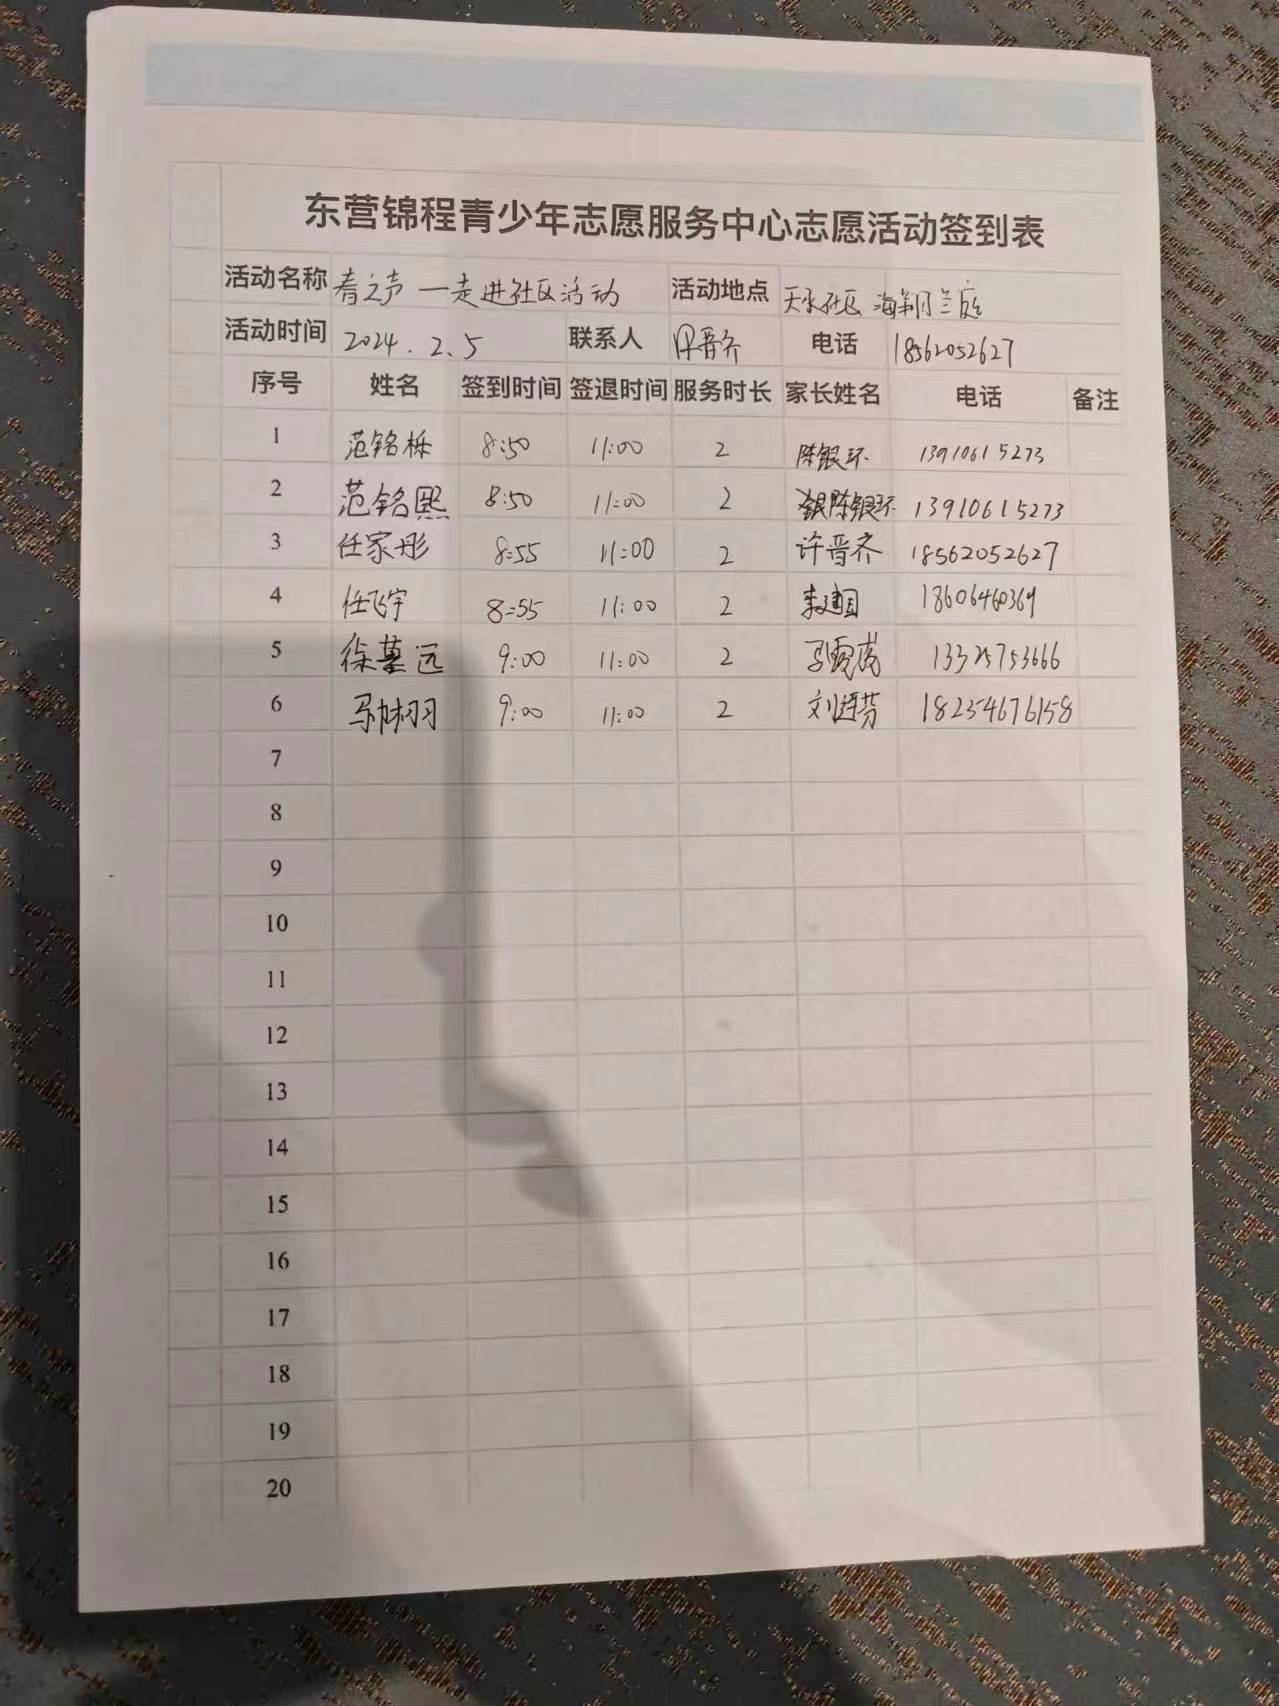 东营锦程青少年志愿服务中心志愿活动签到表
活动名称 春之声 一走进社区活动 活动地点 社区 海翔月兰庭
活动时间 2024.2.5 联系人 晋齐 电话 18562052627
序号 姓名 签到时间 签退时间 服务时长 家长姓名 电话 备注
1 范铭栎 8:50 11:00 2 陈银环 13910615273
2 范铭熙 8:50 11:00 2 陈银环 13910615273
3 任家彤 8:55 11:00 2 许晋齐 18562052627
4 任飞宇 8:55 11:00 2 李建国 18606460369
5 徐墓远 9:00 11:00 2 13325753666
6 9:00 11:00 2 18254676158
7
8
9
10
11
12
13
14
15
16
17
18
19
20